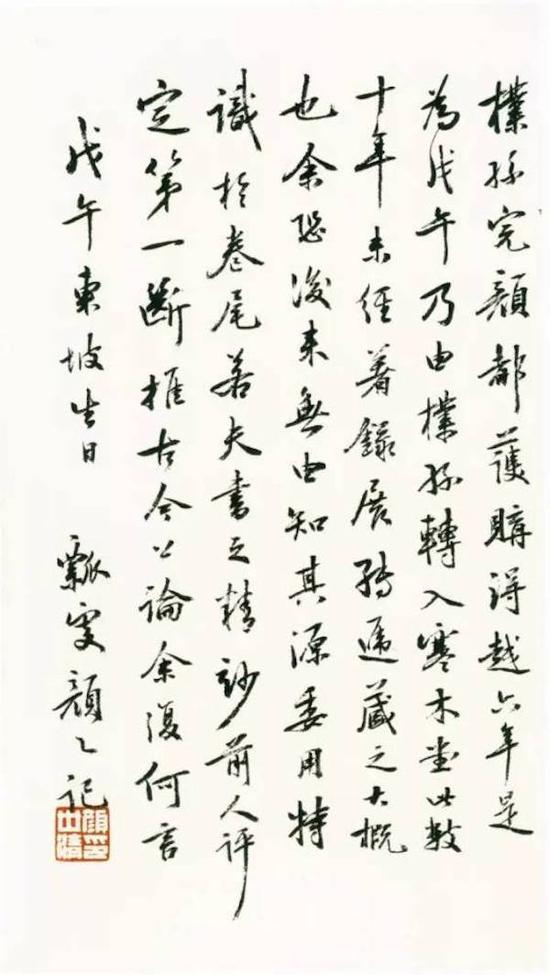 樸孫完顏都護購得越六年是
為戊午乃由樸孫轉入寒木堂此數
十年未經著錄展轉遞藏之大概
也余恐後來無由知其源委用特
識於卷尾若夫書之精妙前人評
定第一斷推古今公論余復何言
戊午東坡生日 瓢叟顏記